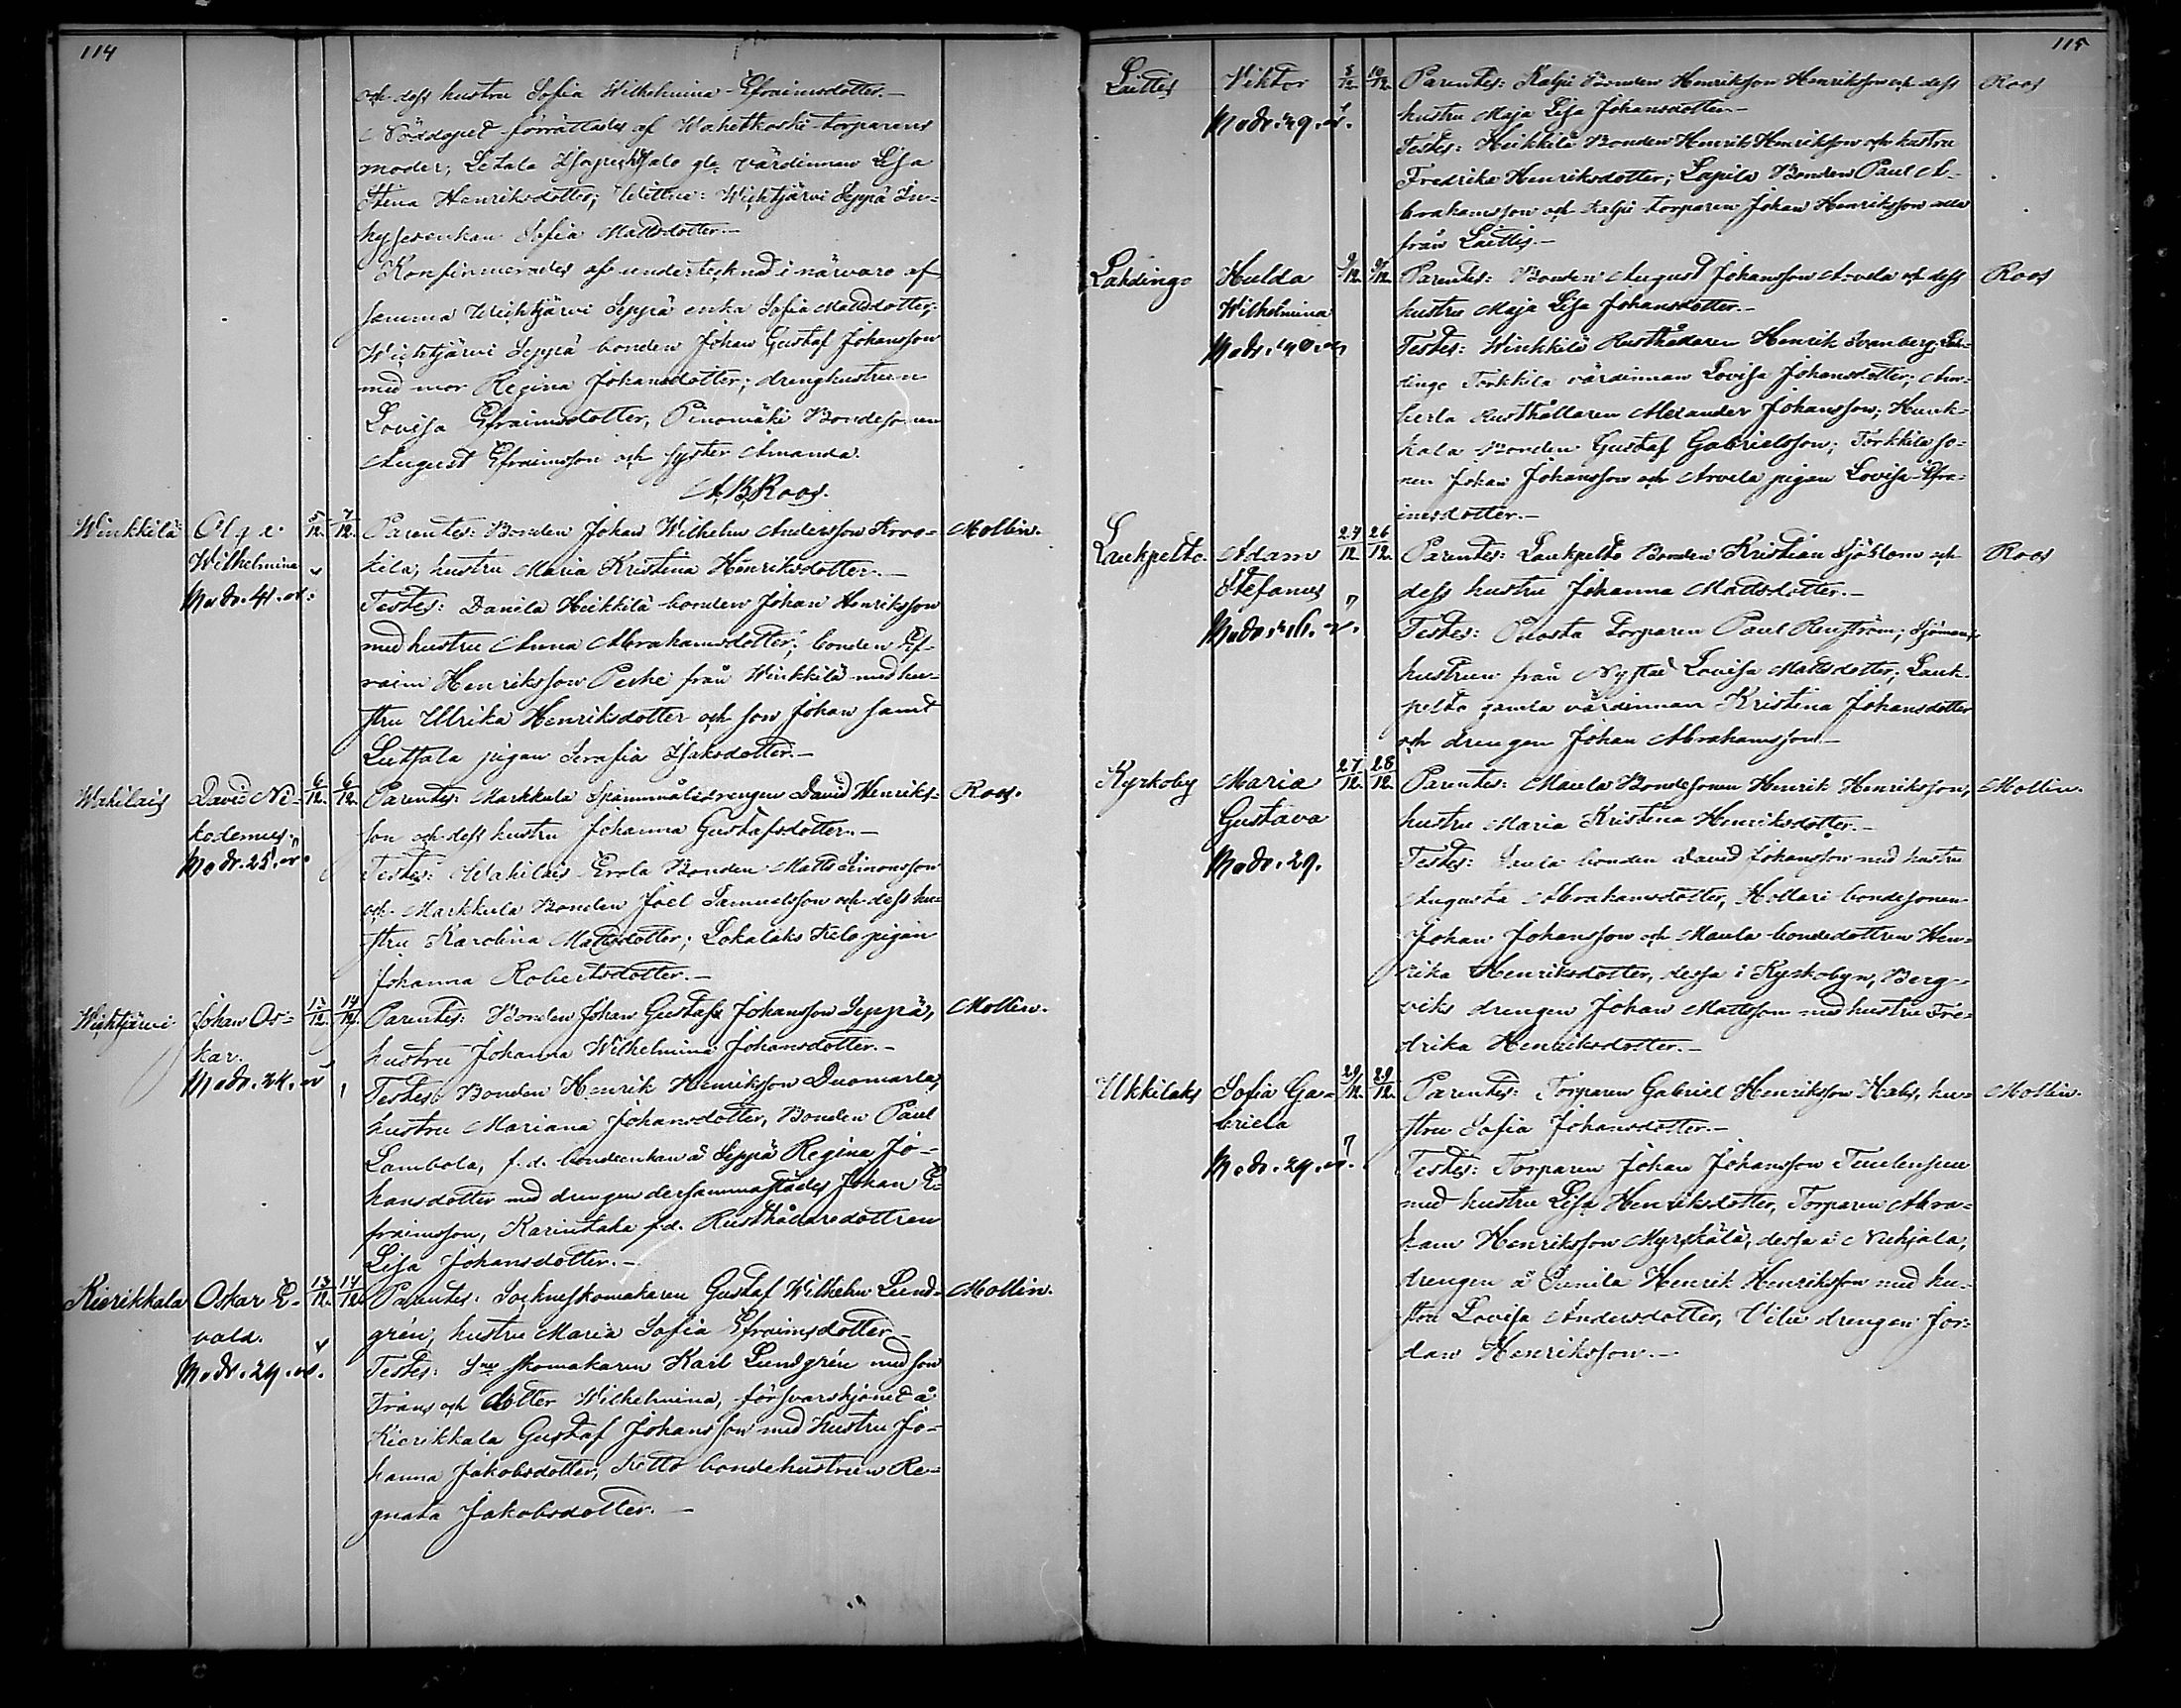 114
och dess hustru Sofia Wilhelmina Efraimsdotter.—
Nöddopet förrättades af Wahetkoski torparens
moder; värdinnan Lisa
Stina Henriksdotter; Wittne: Wichtjärvi Seppä In-
hysesenkan Sofia Mattsdotter.—
Konfirmerades af undertecknad i närvaro af
samma Wichtjärvi Seppä enka Sofia Mattsdotter;
Wichtjärvi Seppä bonden Johan Gustaf Johansson
med mor Regina Johansdotter; dränghustrun
Lovisa Efraimsdotter, Pinomäki Bondesonen
August Efraimsson och syster Amanda.
A B Roos.
Winkkilä
Olga
Wilhelmina
Modr. 41. år.
5/12. 7/12.
Parentes: Bonden Johan Wilhelm Andersson Kroo-
kila, hustru Maria Kristina Henriksdotter.—
Testes: Danila Heikkilä bonden Johan Henriksson
med hustru Anna Abrahamsdotter; bonden Ef-
raim Henriksson Perhe från Winkkilä med hu-
stru Ulrika Henriksdotter och son Johan samt
pigan Serafia Isaksdotter.—
Mollin.
Wahilais
David Ni-
kodemus
Modr. 25. år.
6/12. 6/12.
Parentes: Markkula Spannmålsdrengen David Henriks-
son och dess hustru Johanna Gustafsdotter.—
Testes: Wahilais Erola Bonden Matts Simonsson
och Markkula Bonden Joel Samuelsson och dess hu-
stru Karolina Mattsdotter; Lokalaks Kelo pigan
Johanna Robertsdotter.—
Roos.
Wichtjärvi
Johan Os-
kar.
Modr. 24. år
13/12. 14/12.
Parentes: Bonden Johan Gustaf Johansson Seppä,
hustru Johanna Wilhelmina Johansdotter.—
Testes: Bonden Henrik Henriksson Duomarla,
hustru Mariana Johansdotter, Bonden Paul
Lambola, f.d. bondeenkan å Seppä Regina Jo-
hansdotter med drengen dersammastädes Johan E-
fraimsson, Karintaka f.d. Rusthållaredottren
Lisa Johansdotter.—
Mollin.
Kierikkala
Oskar E-
vald.
Modr. 29. år.
13/12. 14/12.
Parentes: Socknskomakaren Gustaf Wilhelm Lund-
grén; hustru Maria Sofia Efraimsdotter.—
Testes: skomakaren Karl Lundgrén med son
Frans och dotter Wilhelmina, försvarshjonet å
Kierikkala Gustaf Johansson med hustru Jo-
hanna Jakobsdotter, Kotto bondehustrun Re-
gnata Jakobsdotter.—
Mollin.
115
Laittis
Viktor
Modr. 29. år.
8/12. 10/12.
Parentes: Kalpe Bonden Henriksson Henriksson och dess
hustru Maja Lisa Johansdotter.—
Testes: Heikkilä Bonden Henrik Henriksson och hustru
Fredrika Henriksdotter; Lapila Bonden Paul A-
brahamsson och Kalpe torparen Johan Henriksson alla
från Laittis.—
Roos
Lahdingo
Hulda
Wilhelmina
Modr. 40. år
9/12. 9/12.
Parentes: Bonden August Johansson Arvela och dess
hustru Maja Lisa Johansdotter.—
Testes: Winkkilä Rusthållaren Henrik Svanberg, Lah-
dingo Torkkila värdinnan Lovisa Johansdotter;
Rusthållaren Alexander Johansson; Hunk-
kala Bonden Gustaf Gabrielsson; Torkkila so-
nen Johan Johansson och Arvela pigan Lovisa Efra-
imsdotter.—
Roos
Laukpelto.
Adam
Stefanus
Modr. 16. år.
24/12. 26/12.
Parentes: Laukpelto Bonden Kristian Sjöblom och
dess hustru Johanna Mattsdotter.—
Testes: Puosta Torparen Paul Renström; Sjömans-
hustrun från Nystad Lovisa Mattsdotter, Lauk-
pelto gamla värdinnan Kristina Johansdotter
och drengen Johan Abrahamsson.—
Roos
Kyrkoby
Maria
Gustava
Modr. 29.
27/12. 28/12.
Parentes: Maula Bondesonen Henrik Henriksson,
hustru Maria Kristina Henriksdotter.—
Testes: bonden David Johansson med hustru
Augusta Abrahamsdotter, Hollari bondesonen
Johan Johansson och Maula bondedottren Hen-
rika Henriksdotter, dessa i Kyrkobyn, Berg-
viks drengen Johan Mattsson med hustru Fre-
drika Henriksdotter.—
Mollin.
Ukkilaks
Sofia Ga-
briela
Modr. 24. år.
29/12. 29/12.
Parentes: Torparen Gabriel Henriksson Hals, hu-
stru Sofia Johansdotter.—
Testes: Torparen Johan Johansson Tuulensuu
med hustru Lisa Henriksdotter, Torparen Abra-
ham Henriksson Myrskälä, dessa å Nuhjala,
drengen å Eunila Henrik Henriksson med hu-
stru Lovisa Andersdotter, Vilu drengen Jor-
dan Henriksson.—
Mollin.